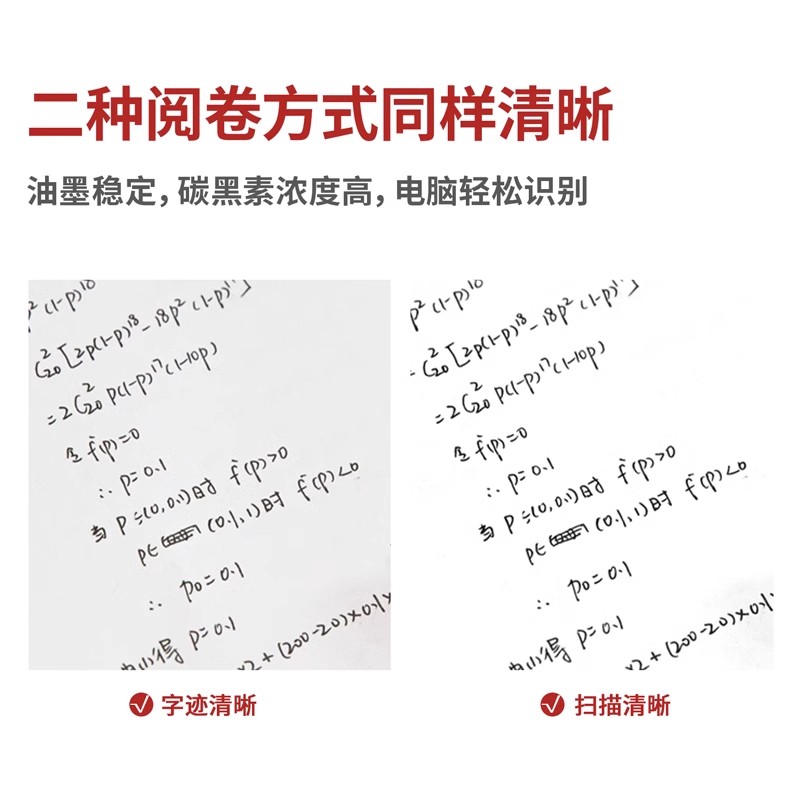 二种阅卷方式同样清晰
油墨稳定，碳黑素浓度高，电脑轻松识别
p² (1-p)¹⁸
C²₂₀[2p(1-p)¹⁸-18p²(1-p)¹⁷]
=2C²₂₀ p(1-p)¹⁷(1-10p)
令 f'(p)=0
∴ p=0.1
当 p∈(0,0.1)时 f'(p)>0
p∈ (0.1,1)时 f'(p)<0
∴ p₀=0.1
得 p=0.1
×2+(200-20)×0.1×
p² (1-p)¹⁸
=C²₂₀[2p(1-p)¹⁸-18p²(1-p)¹⁷]
=2C²₂₀ p(1-p)¹⁷(1-10p)
令 f'(p)=0
∴ p=0.1
当 p∈(0,0.1)时 f'(p)>0
p∈ (0.1,1)时 f'(p)<0
∴ p₀=0.1
得 p=0.1
×2+(200-20)×0.1
字迹清晰
扫描清晰